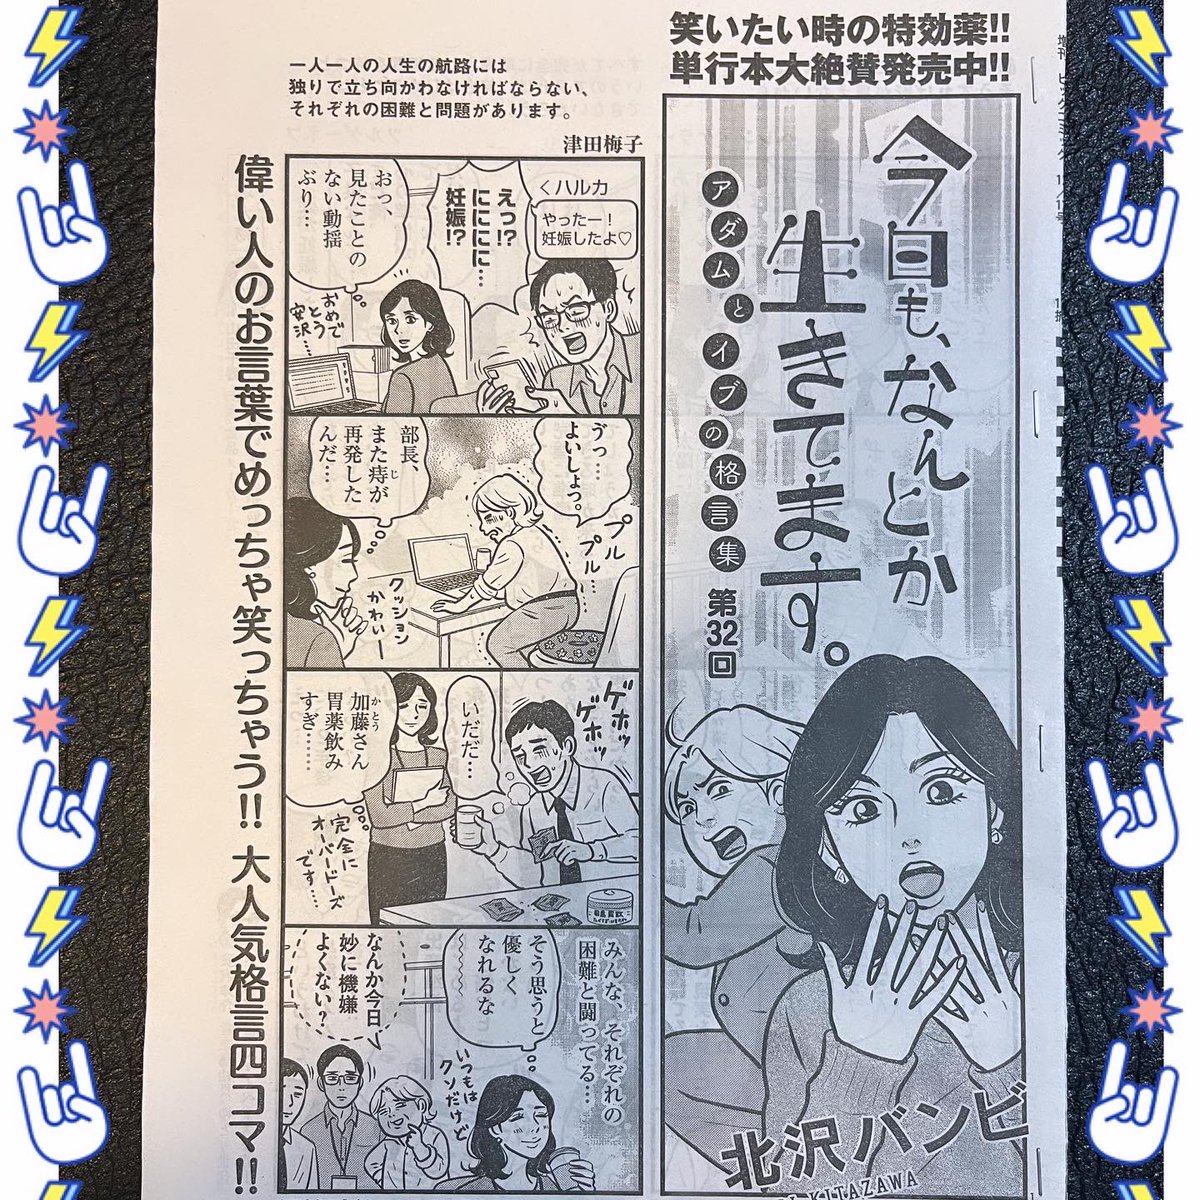 笑いたい時の特効薬!!
単行本大絶賛発売中!!
今日も、なんとか
生きてます。
アダムとイブの格言集
第32回
北沢バンビ
KITAZAWA
一人一人の人生の航路には
独りで立ち向かわなければならない、
それぞれの困難と問題があります。
津田梅子
くハルカ
やったー!
妊娠したよ♡
えっ!?
にににに…
妊娠!?
おっ、
見たことの
ない動揺
ぶり…
おめで
とう
安沢…
ゔっ…
よいしょっ。
プル
プル…
部長、
また痔が
じ
再発した
んだ…
クッション
かわいー
ゲホッ
ゲホッ
いだだ…
加藤さん
かとう
胃薬飲み
すぎ……
完全に
オーバードーズ
です…
みんな、それぞれの
困難と闘ってる…
そう思うと
優しく
なれるな
〜〜〜〜
いつもは
クソだけど
なんか今日
妙に機嫌
よくない?
偉い人のお言葉でめっちゃ笑っちゃう!! 大人気格言四コマ!!